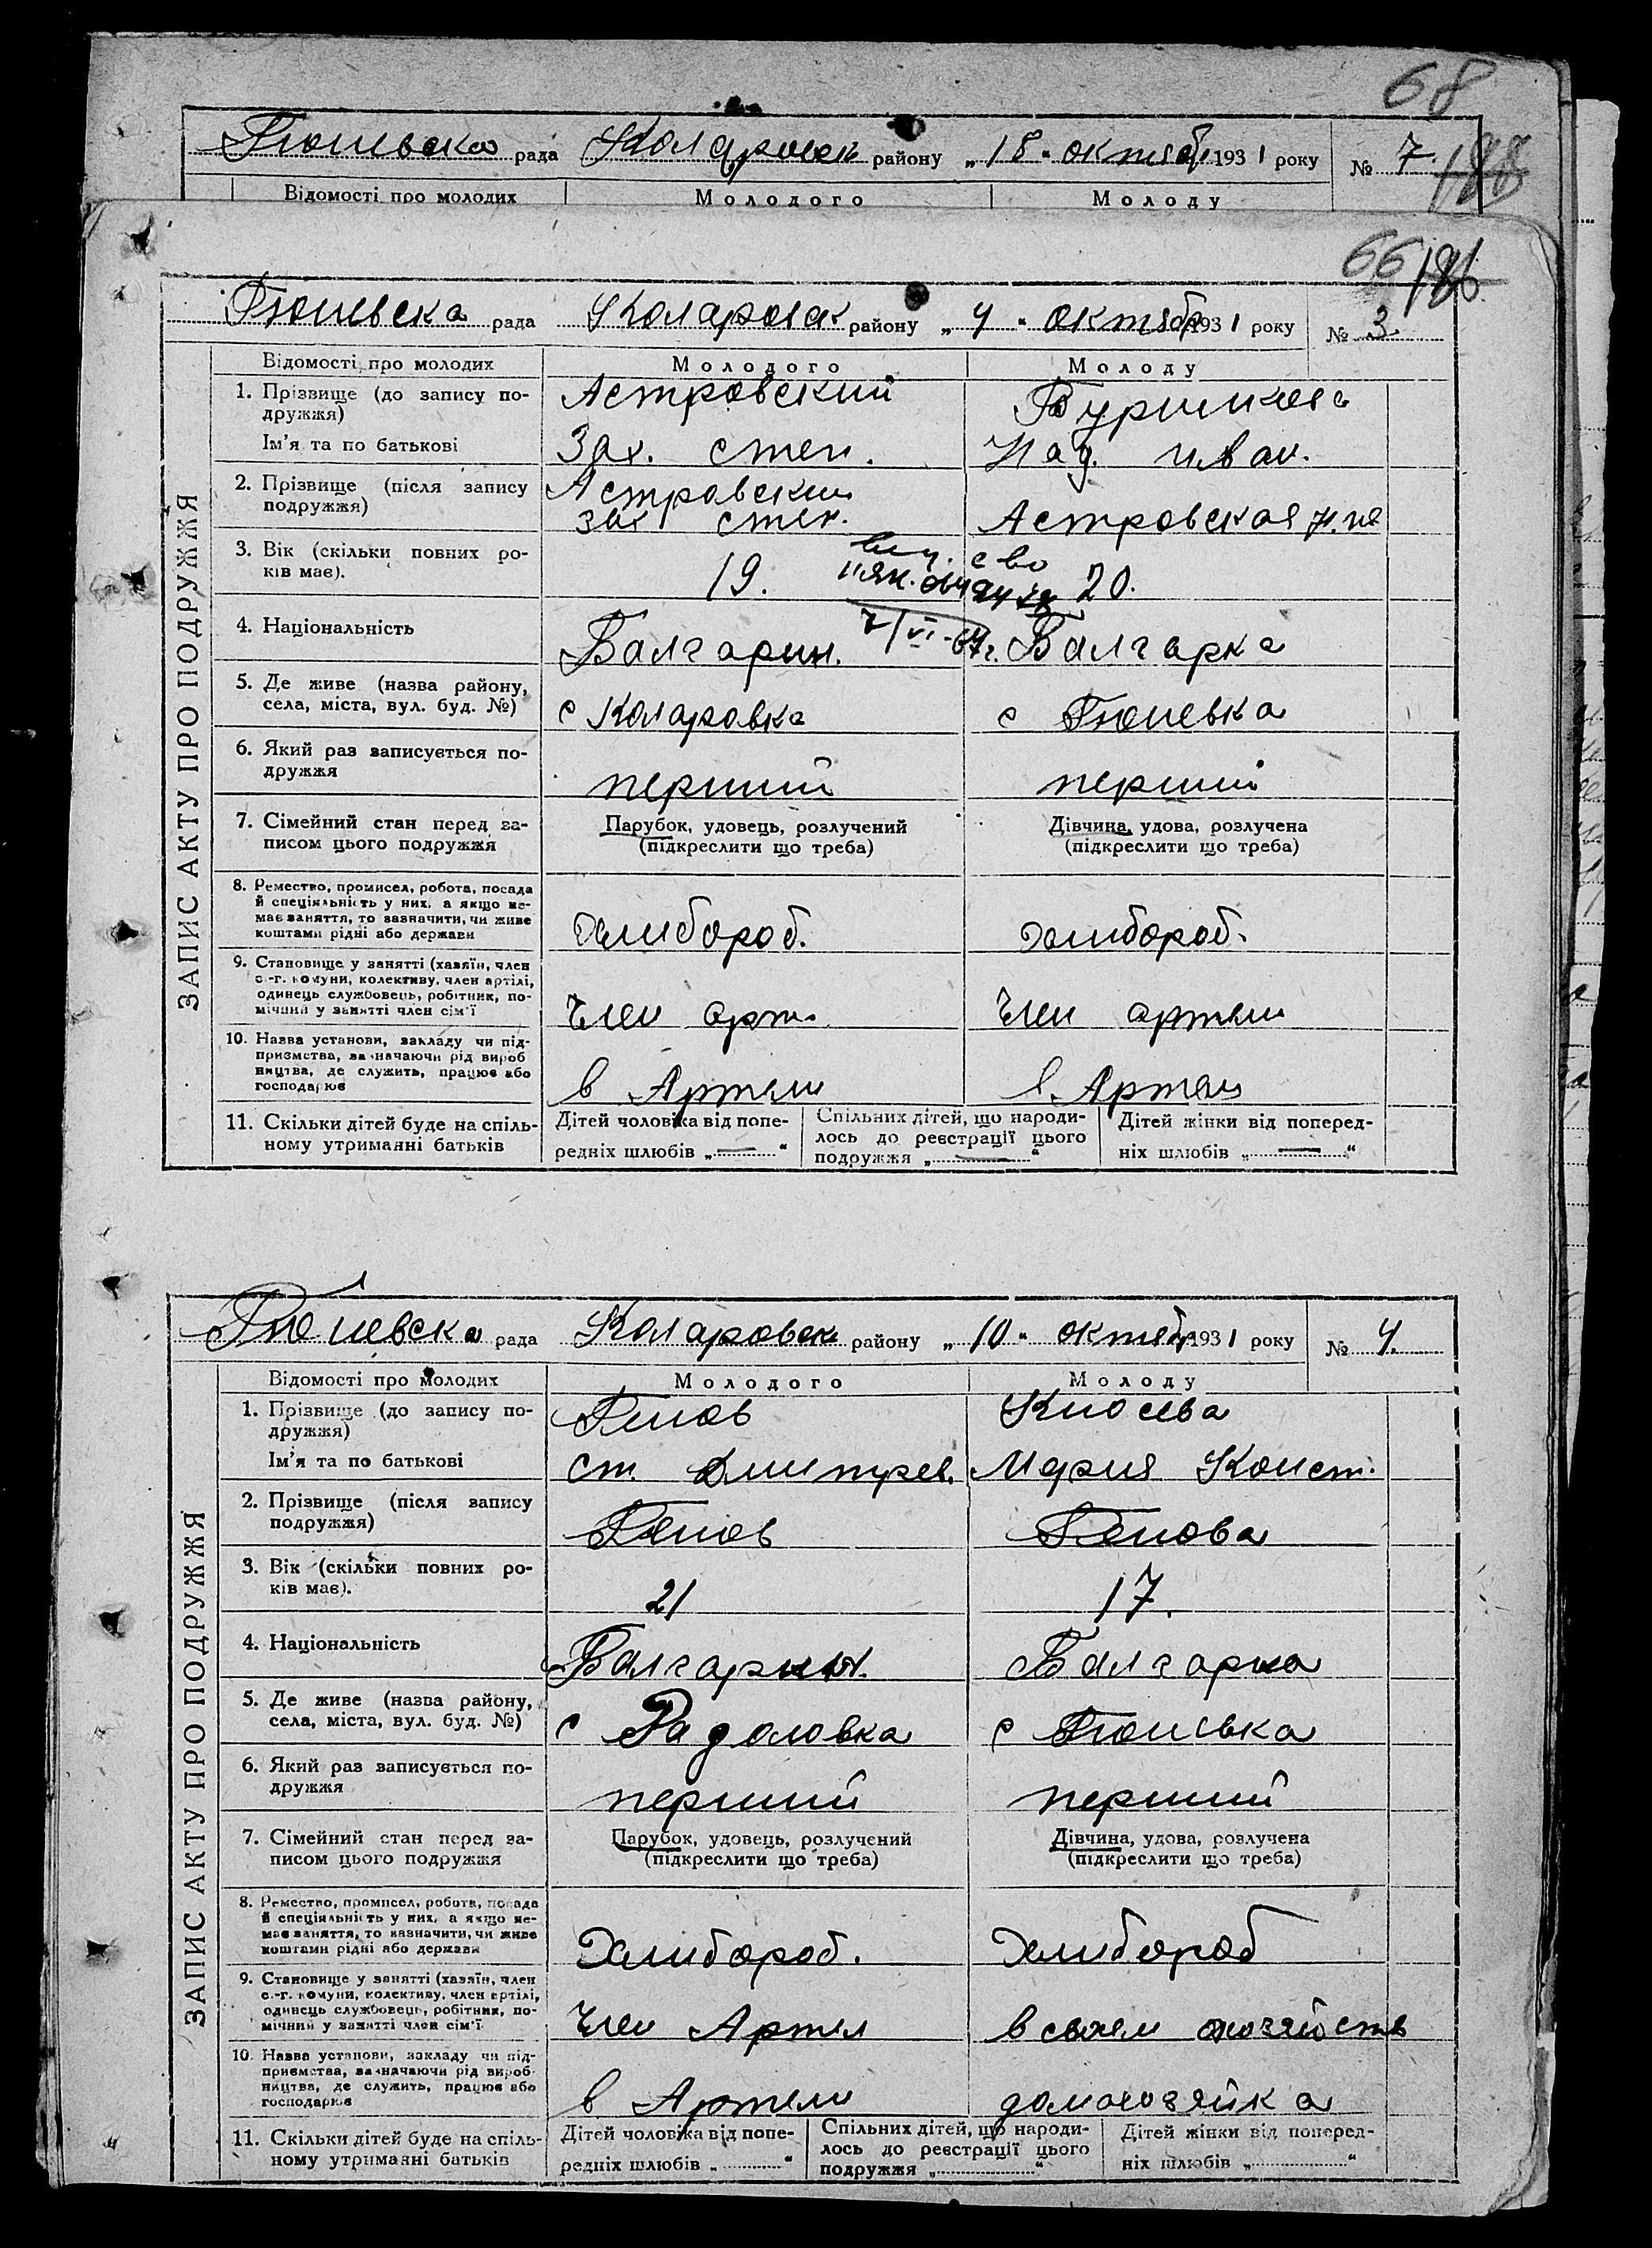 68
Гюневска рада Коларовск района „18" октябр 1931 року № 7.
188
Відомості про молодих Молодого Молоду
66 186
Гюневска рада Коларовск району „4" октябр 1931 року № 3
ЗАПИС АКТУ ПРО ПОДРУЖЖЯ
Відомості про молодих Молодого Молоду
1. Прізвище (до запису по- Астровский
дружжя)
Ім'я та по батькові Зах. степ. Над. иван.
2. Прізвище (після запису Астровский
подружжя) зах степ. Астровская
3. Вік (скільки повних ро-
ків має). 19. 20.
7/VI-64г.
4. Національність Балгарин. Балгарка
5. Де живе (назва району,
села, міста, вул. буд. №) с Коларовка с Гюневка
6. Який раз записується по-
дружжя перший перший
7. Сімейний стан перед за- Парубок, удовець, розлучений Дівчина, удова, розлучена
писом цього подружжя (підкреслити що треба) (підкреслити що треба)
8. Ремество, промисел, робота, посада
й спеціяльність у них, а якщо не-
має заняття, то зазначити, чи живе
коштами рідні або держави Хлибороб. Хлибороб.
9. Становище у занятті (хазяїн, член
с.-г. комуни, колективу, член артілі,
одинець службовець, робітник, по-
мічний у занятті член сім'ї Член арт. Член артели
10. Назва установи, закладу чи під-
приємства, зазначаючи рід вироб
ництва, де служить, працює або
господарює в Артели в Артели
11. Скільки дітей буде на спіль- Дітей чоловіка від попе- Спільних дітей, що народи- Дітей жінки від поперед-
ному утриманні батьків редніх шлюбів „—" лось до реєстрації цього подружжя „—" ніх шлюбів „—"
Гюневска рада Коларовск району „10" октябр 1931 року № 4.
ЗАПИС АКТУ ПРО ПОДРУЖЖЯ
Відомості про молодих Молодого Молоду
1. Прізвище (до запису по- Генов Кносева
дружжя)
Ім'я та по батькові ст. Дмитрев. Мария Конст.
2. Прізвище (після запису
подружжя) Генов Генова
3. Вік (скільки повних ро-
ків має). 21 17.
4. Національність Балгарин. Балгарка
5. Де живе (назва району,
села, міста, вул. буд. №) с Радоловка с Гюневка
6. Який раз записується по-
дружжя перший перший
7. Сімейний стан перед за- Парубок, удовець, розлучений Дівчина, удова, розлучена
писом цього подружжя (підкреслити що треба) (підкреслити що треба)
8. Ремество, промисел, робота, посада
й спеціяльність у них, а якщо не-
має заняття, то зазначити, чи живе
коштами рідні або держави Хлибороб. Хлибороб
9. Становище у занятті (хазяїн, член
с.-г. комуни, колективу, член артілі,
одинець службовець, робітник, по-
мічний у занятті член сім'ї Член Артел в своем хозяйств
10. Назва установи, закладу чи під-
приємства, зазначаючи рід вироб-
ництва, де служить, працює або
господарює в Артели домохозяйка
11. Скільки дітей буде на спіль- Дітей чоловіка від попе- Спільних дітей, що народи- Дітей жінки від поперед-
ному утриманні батьків редніх шлюбів „" лось до реєстрації цього подружжя „" ніх шлюбів „"